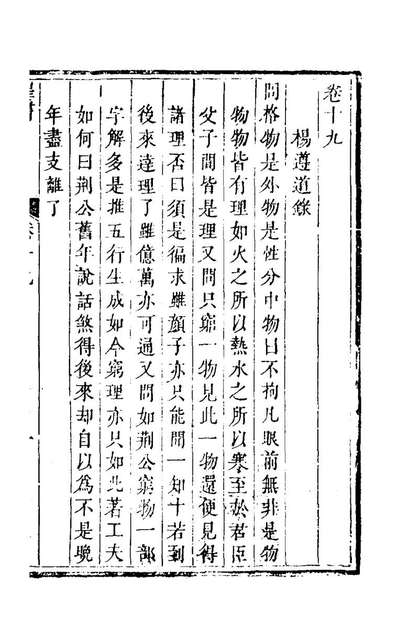 卷十九
楊遵道錄
問格物是外物是性分中物曰不拘凡眼前無非是物
物物皆有理如火之所以熱水之所以寒至於君臣
父子間皆是理又問只窮一物見此一物還便見得
諸理否曰須是徧求雖顏子亦只能聞一知十若到
後來達理了雖億萬亦可通又問如荆公窮物一部
字解多是推五行生成如今窮理亦只如此著工夫
如何曰荆公舊年說話煞得後來却自以爲不是晚
年盡支離了
卷十九